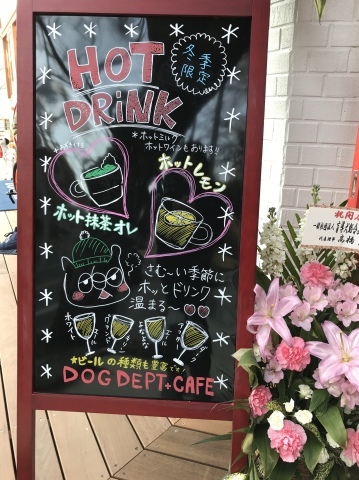 冬季限定
HOT
DRINK
*ホットミルク
ホットワインもあります!
ホットレモン
ホット抹茶オレ
さむ〜い季節に
ホッとドリンク
温まる〜
★ビールの種類も豊富です!
DOG DEPT+CAFE
祝開店
高橋